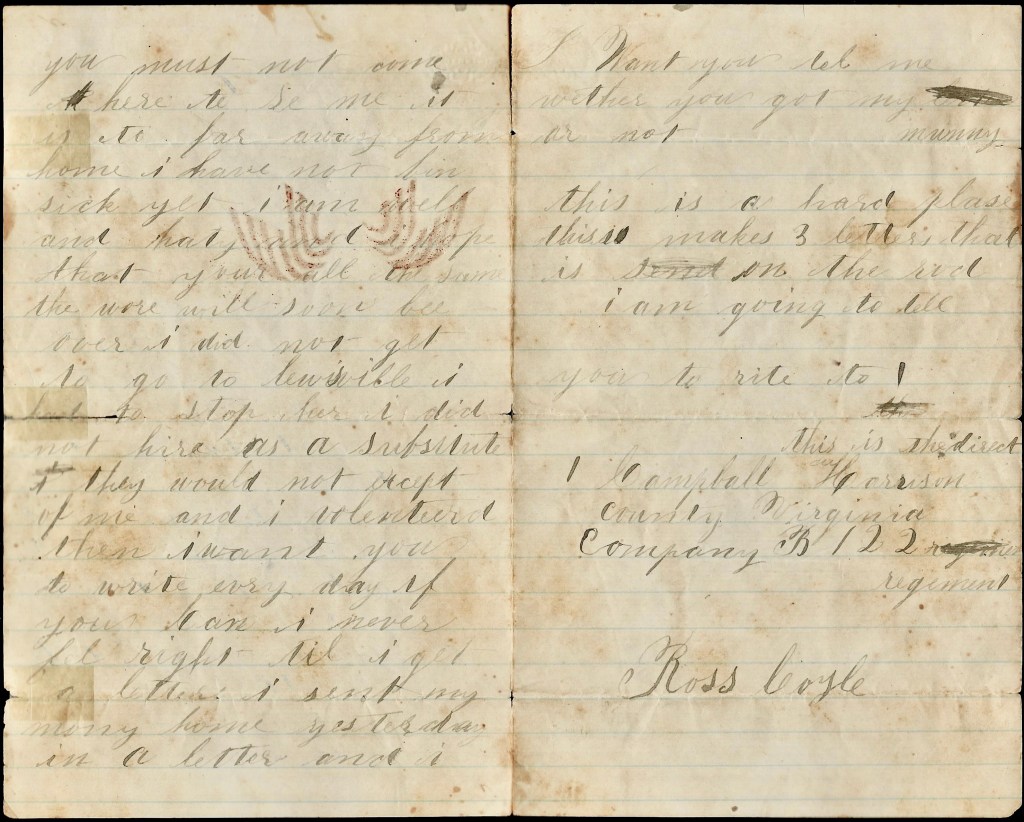 you must not come
here to se me it
is to far away from
home i have not bin
sick yet i am well
and haty and hope
that your all the same
the wore will soon be
over i did not get
to go to lewisville i
had to stop her i did
not hire as a substitute
t they would not except
of me and i volenteerd
then i want you
to write evry day if
you can i never
fel right til i get
a letter i sent my
mony home yesterday
in a letter and i
I Want you tel me
wether you got my
or not munny
this is a hard plase
this makes 3 letters that
is send on the rod
i am going to tell
you to rite to
this is the direct
Campball Harrison
county Virginia
Company B 122
regiment
Ross Coyle